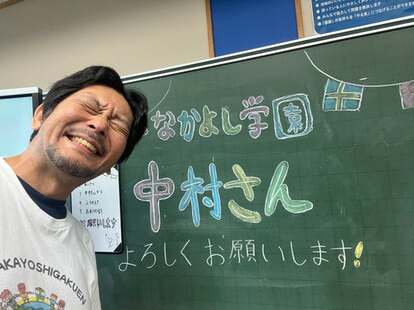 なかよし学園
中村さん
よろしくお願いします!
AKAYOSHIGAKUEN